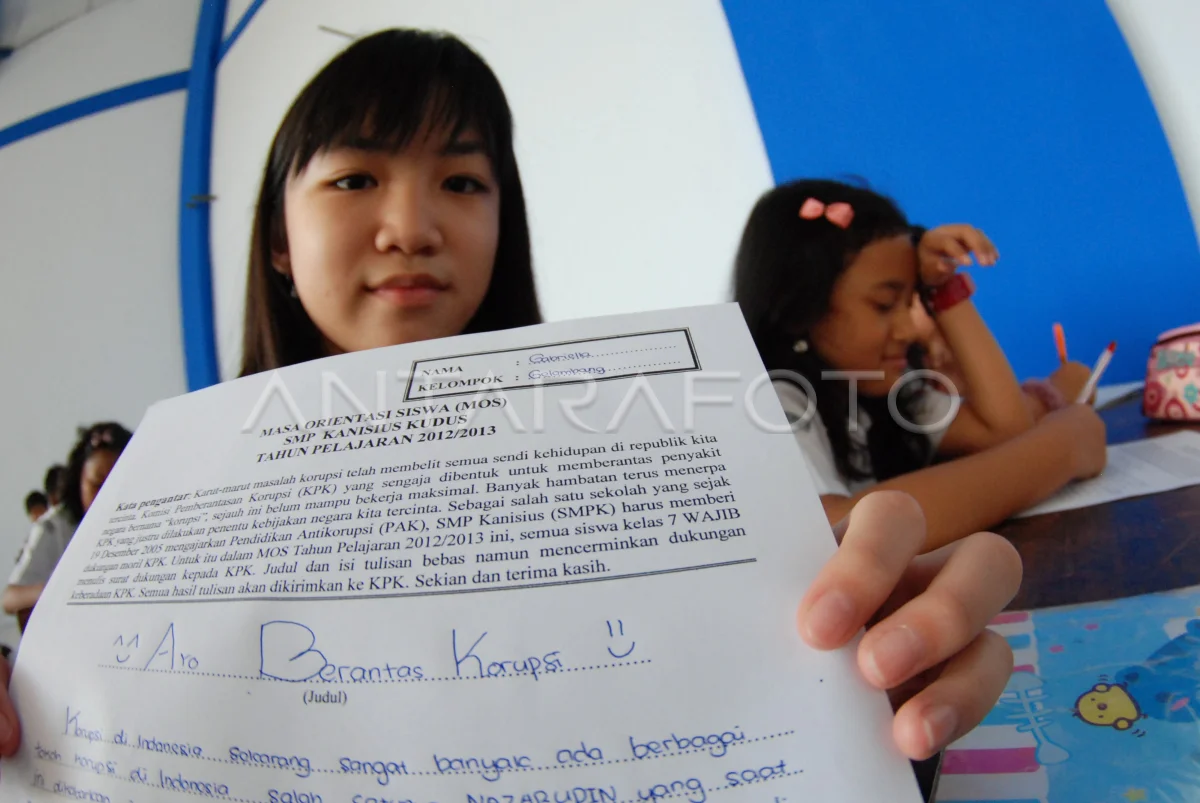 NAMA : Gabriella
KELOMPOK : Gulombang
MASA ORIENTASI SISWA (MOS)
SMP KANISIUS KUDUS
TAHUN PELAJARAN 2012/2013
Kata pengantar: Karut-marut masalah korupsi telah membelit semua sendi kehidupan di republik kita
tercinta. Komisi Pemberantasan Korupsi (KPK) yang sengaja dibentuk untuk memberantas penyakit
negara bernama "korupsi", sejauh ini belum mampu bekerja maksimal. Banyak hambatan terus menerpa
KPK yang justru dilakukan penentu kebijakan negara kita tercinta. Sebagai salah satu sekolah yang sejak
19 Desember 2005 mengajarkan Pendidikan Antikorupsi (PAK), SMP Kanisius (SMPK) harus memberi
dukungan moril KPK. Untuk itu dalam MOS Tahun Pelajaran 2012/2013 ini, semua siswa kelas 7 WAJIB
menulis surat dukungan kepada KPK. Judul dan isi tulisan bebas namun mencerminkan dukungan
keberadaan KPK. Semua hasil tulisan akan dikirimkan ke KPK. Sekian dan terima kasih.
Ayo Berantas Korupsi
(Judul)
Korupsi di Indonesia sekarang sangat banyak ada berbagai
korupsi di Indonesia salah NAZARUDIN yang saat
ANTARAFOTO